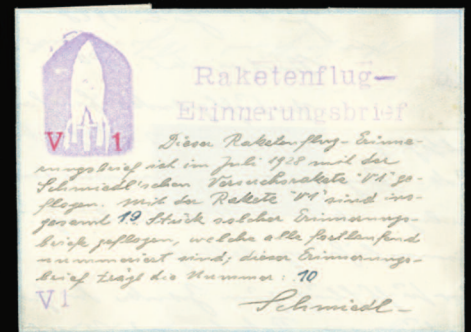 Raketenflug-
Erinnerungsbrief
V 1
Dieser Raketenflug-Erinne-
rungsbrief ist im Juli 1928 mit der
Schmiedl'schen Versuchsrakete "V1" ge-
flogen. Mit der Rakete "V1" sind ins-
gesamt 19 Stück solcher Erinnerungs-
briefe geflogen, welche alle fortlaufend
nummeriert sind; dieser Erinnerungs-
brief trägt die Nummer: 10
V1
Schmiedl-